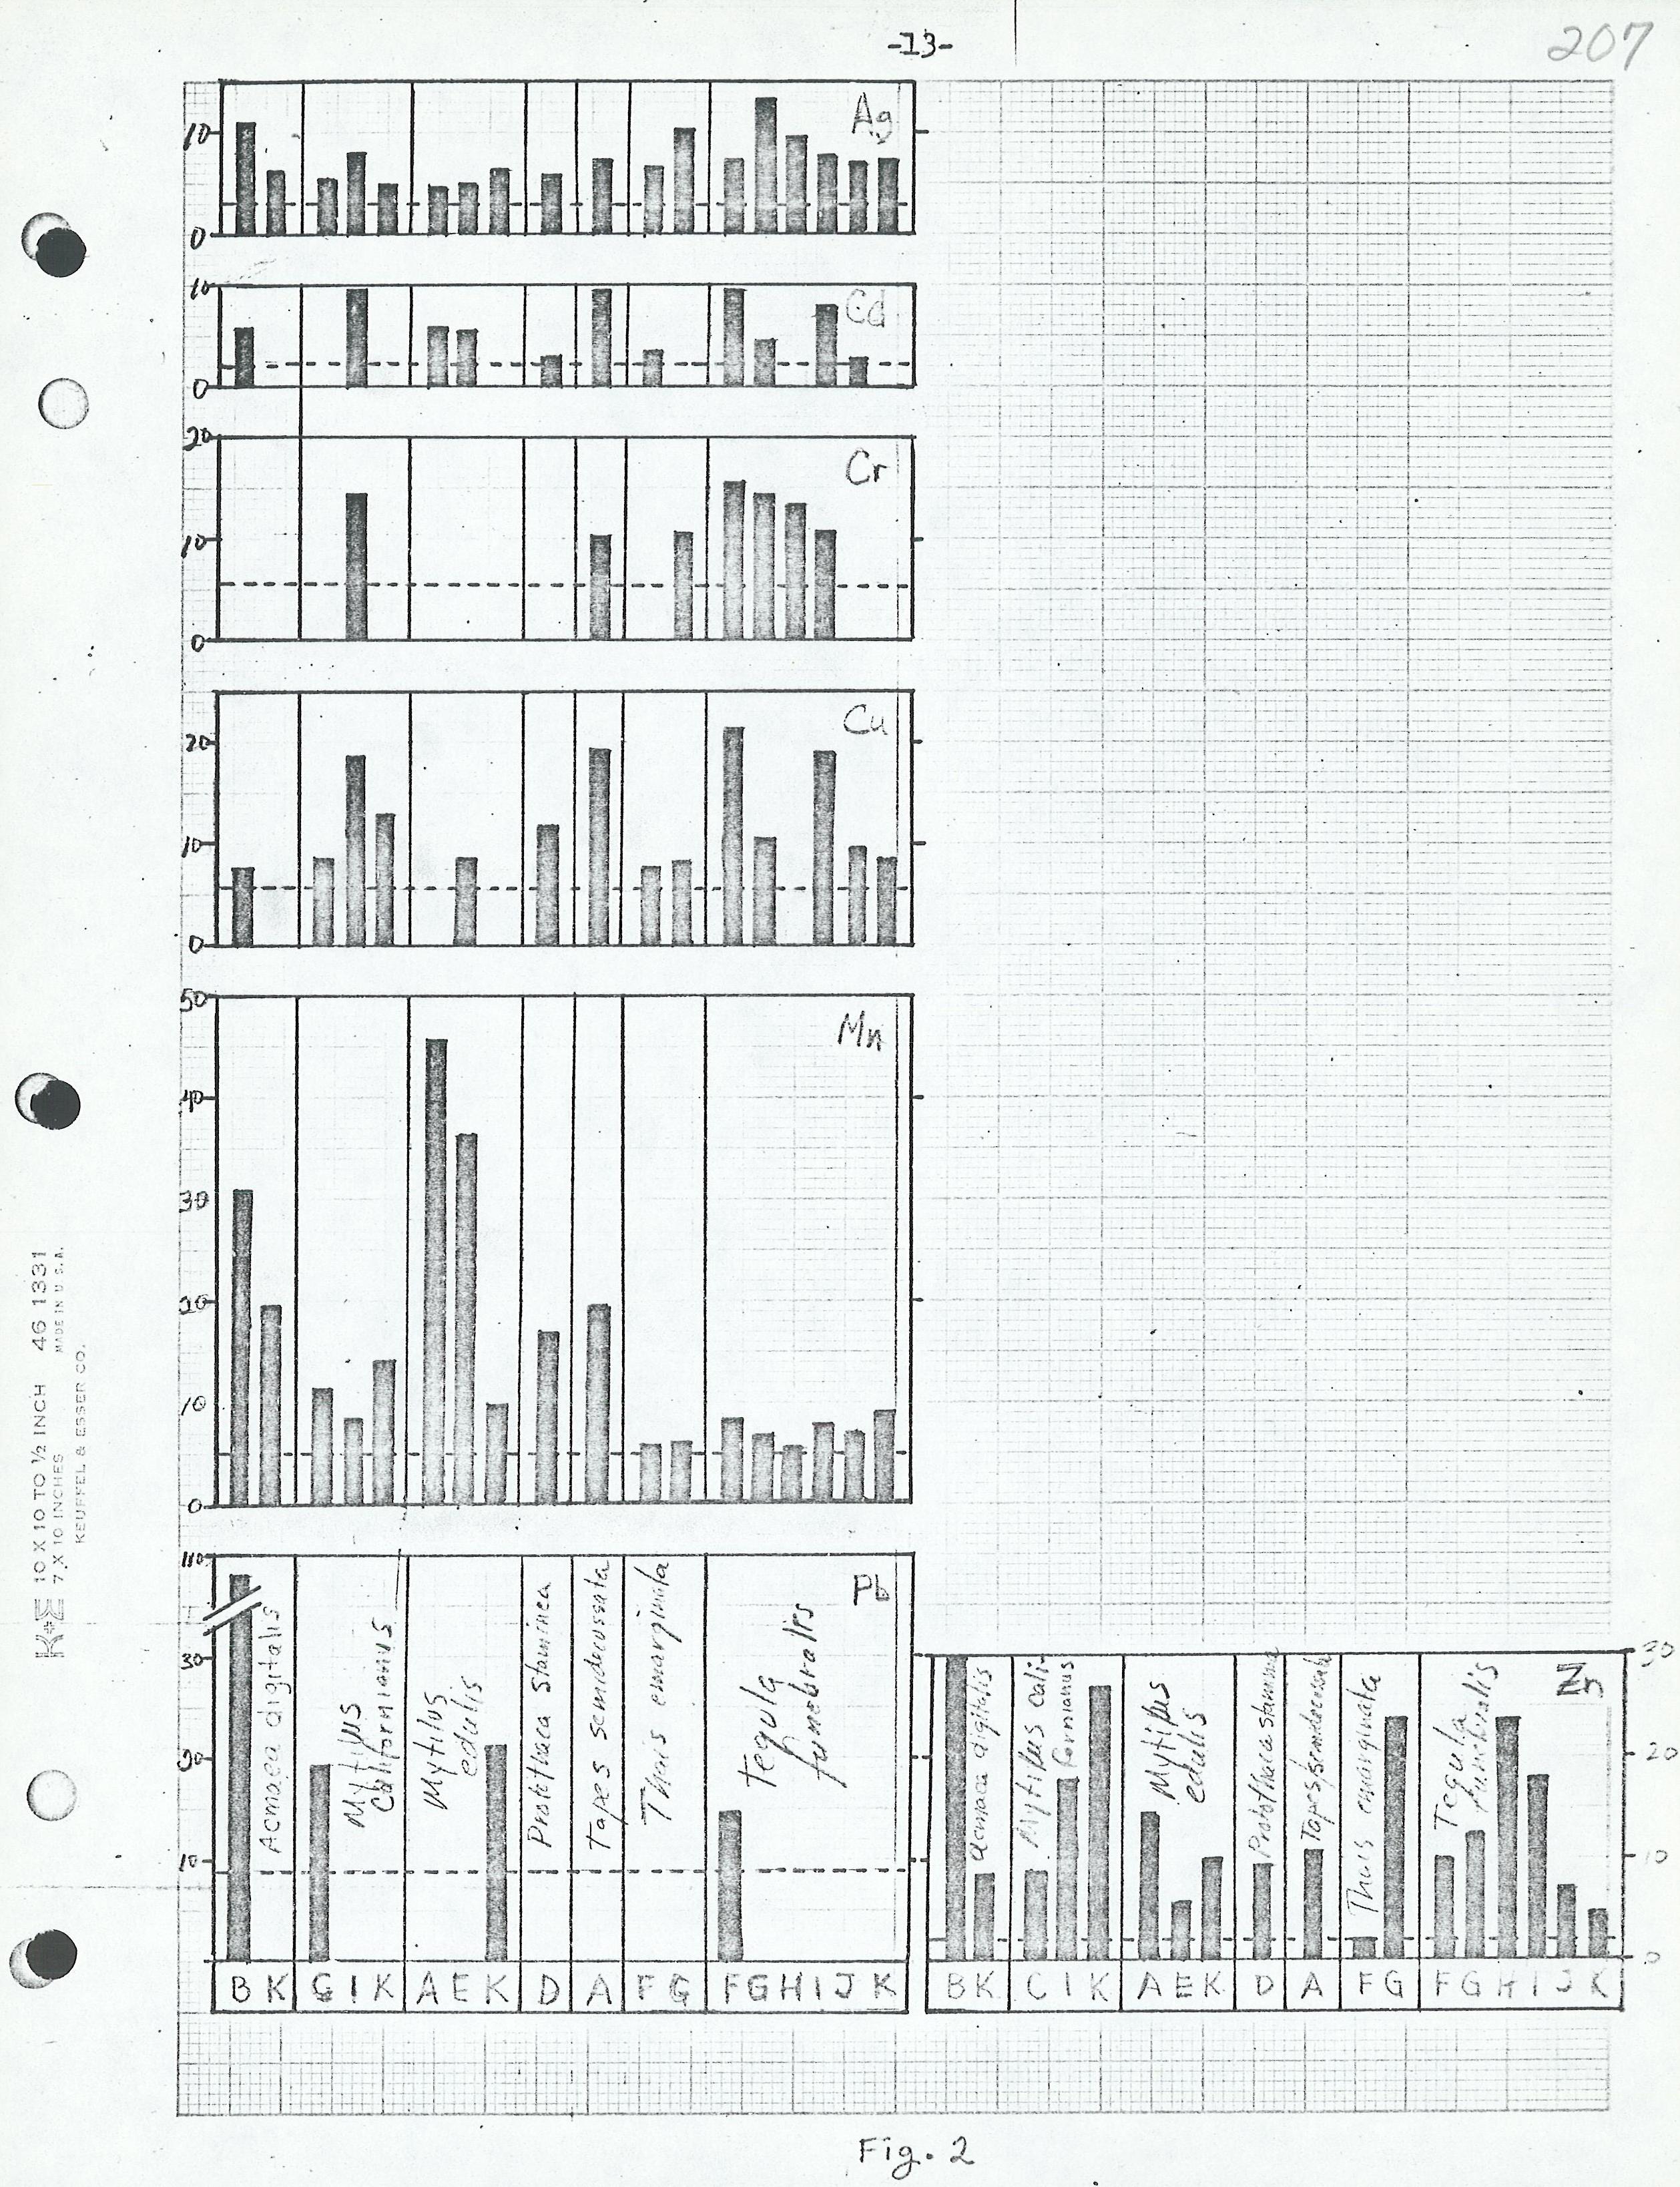 -13-
207
Ag
10
0
Cd
10
0
Cr
20
10
0
Cu
20
10
0
Mn
50
40
30
20
10
0
Pb
110
30
20
10
Acmaea digitalis
Mytilus
Californianus
Mytilus
edulis
Protothaca staminea
Tapes semidecussata
Thais emarginata
Tegula
funebralis
B K C I K A E K D A F G F G H I J K
Zn
30
20
10
0
Acmaea digitalis
Mytilus Cali-
fornianus
Mytilus
edulis
Protothaca staminea
Tapes semidecussata
Thais emarginata
Tegula
funebralis
B K C I K A E K D A F G F G H I J K
K+E 10 X 10 TO ½ INCH 46 1331
7 X 10 INCHES MADE IN U.S.A.
KEUFFEL & ESSER CO.
Fig. 2